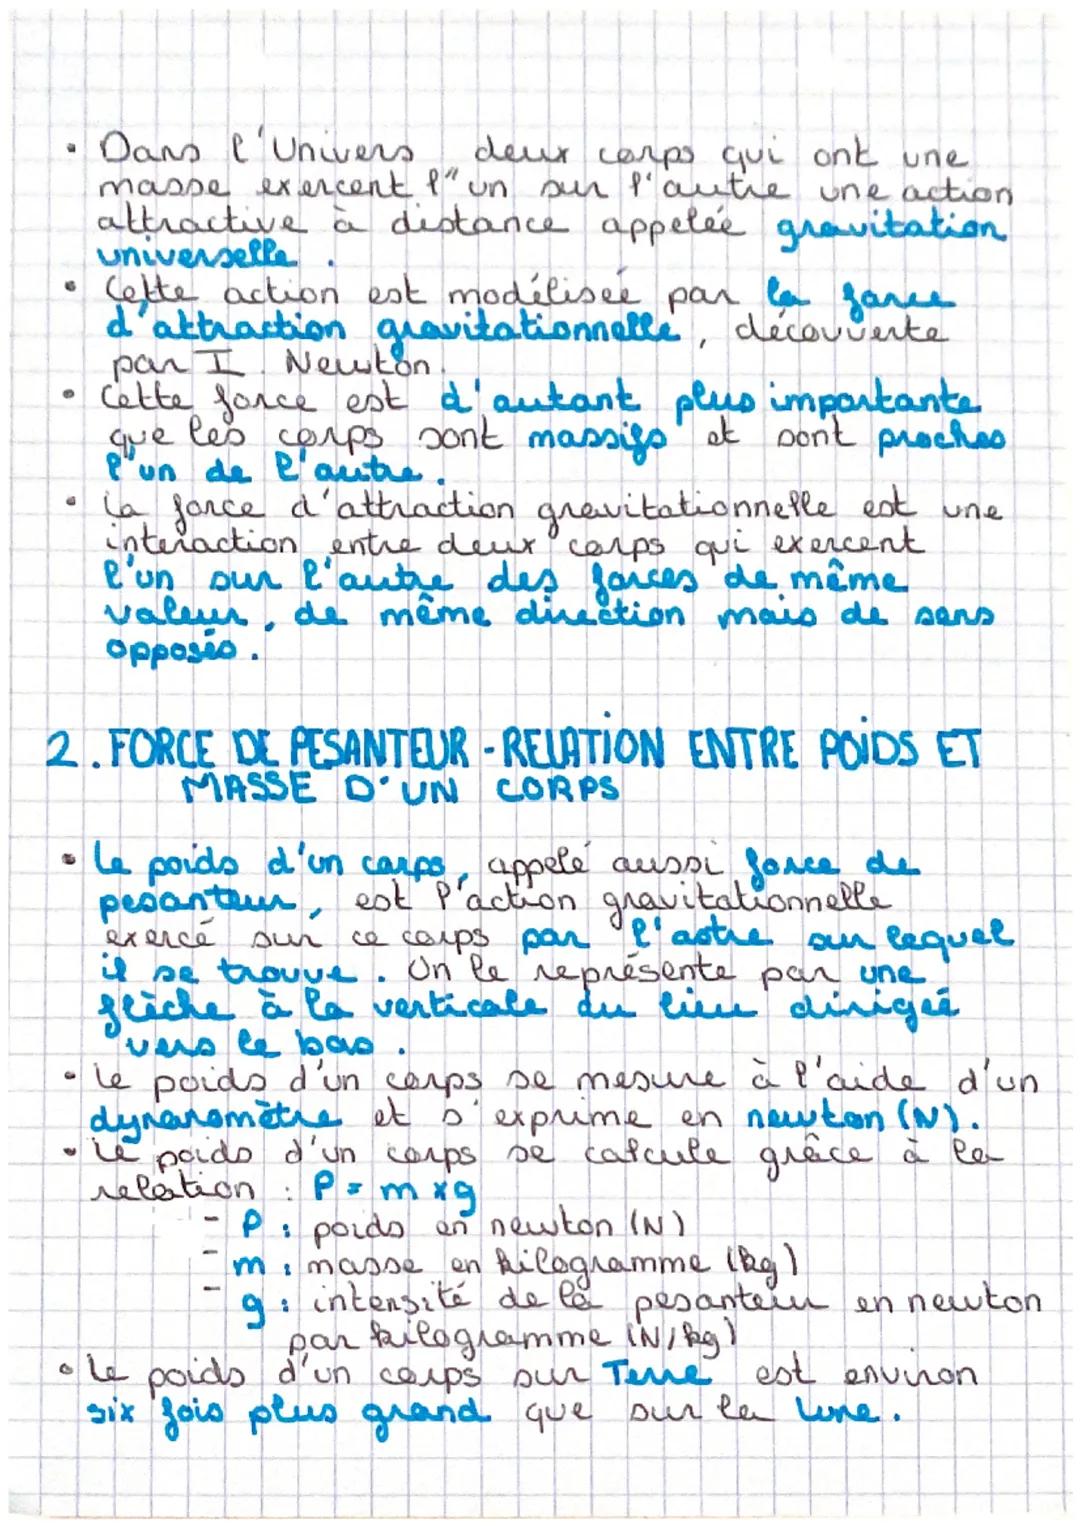 • Dans l'Univers deux corps qui ont une
masse exercent l'un sur l'autre une action
attractive à distance appelée gravitation
universelle.
• Cette action est modélisée par la force
d'attraction gravitationnelle, découverte
par I. Newton.
• Cette force est d'autant plus importante
que les corps sont massifs et sont proches
l'un de l'autre.
• La force d'attraction gravitationnelle est une
interaction entre deux corps qui exercent
l'un sur l'autre des forces de même
valeur, de même direction mais de sens
opposés.
2. FORCE DE PESANTEUR - RELATION ENTRE POIDS ET
MASSE D'UN CORPS
• Le poids d'un corps, appelé aussi force de
pesanteur, est l'action gravitationnelle
exercé sur ce corps par l'astre sur lequel
il se trouve. On le représente par une
flèche à la verticale du lieu dirigée
vers le bas.
• Le poids d'un corps se mesure à l'aide d'un
dynanomètre et s'exprime en newton (N).
• Le poids d'un corps se calcule grâce à la
relation : P = m x g
- P : poids en newton (N)
- m : masse en kilogramme (kg)
- g : intensité de la pesanteur en newton
par kilogramme (N/kg)
• Le poids d'un corps sur Terre est environ
six fois plus grand que sur la Lune.